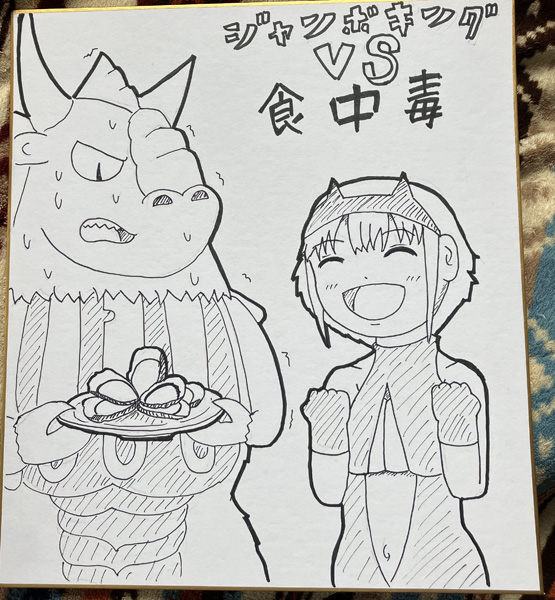 ジャンボキング
VS
食中毒